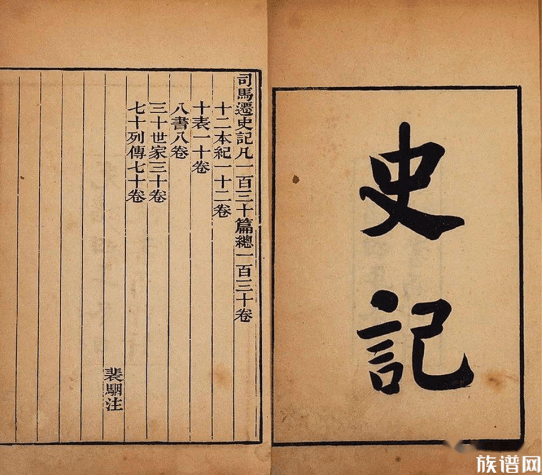 史記
司馬遷史記凡一百三十篇總一百三十卷
十二本紀一十二卷
十表一十卷
八書八卷
三十世家三十卷
七十列傳七十卷
裴駰注
族谱网